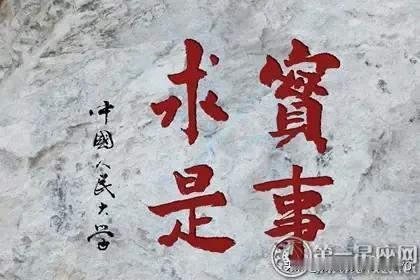 實事
求是
中國人民大學
第一星座网